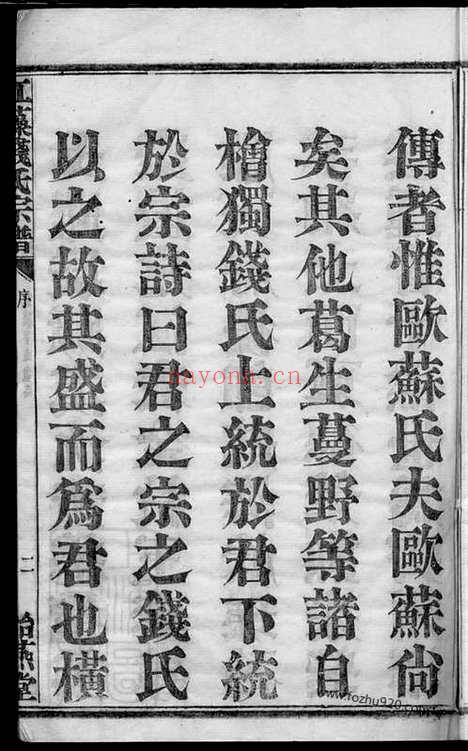 傳者惟歐蘇氏夫歐蘇尙
矣其他葛生蔓野等諸自
檜獨錢氏上統於君下統
於宗詩曰君之宗之錢氏
以之故其盛而爲君也橫
錢氏宗譜
序
二
堂
hayona.cn
www.fozhu920.com